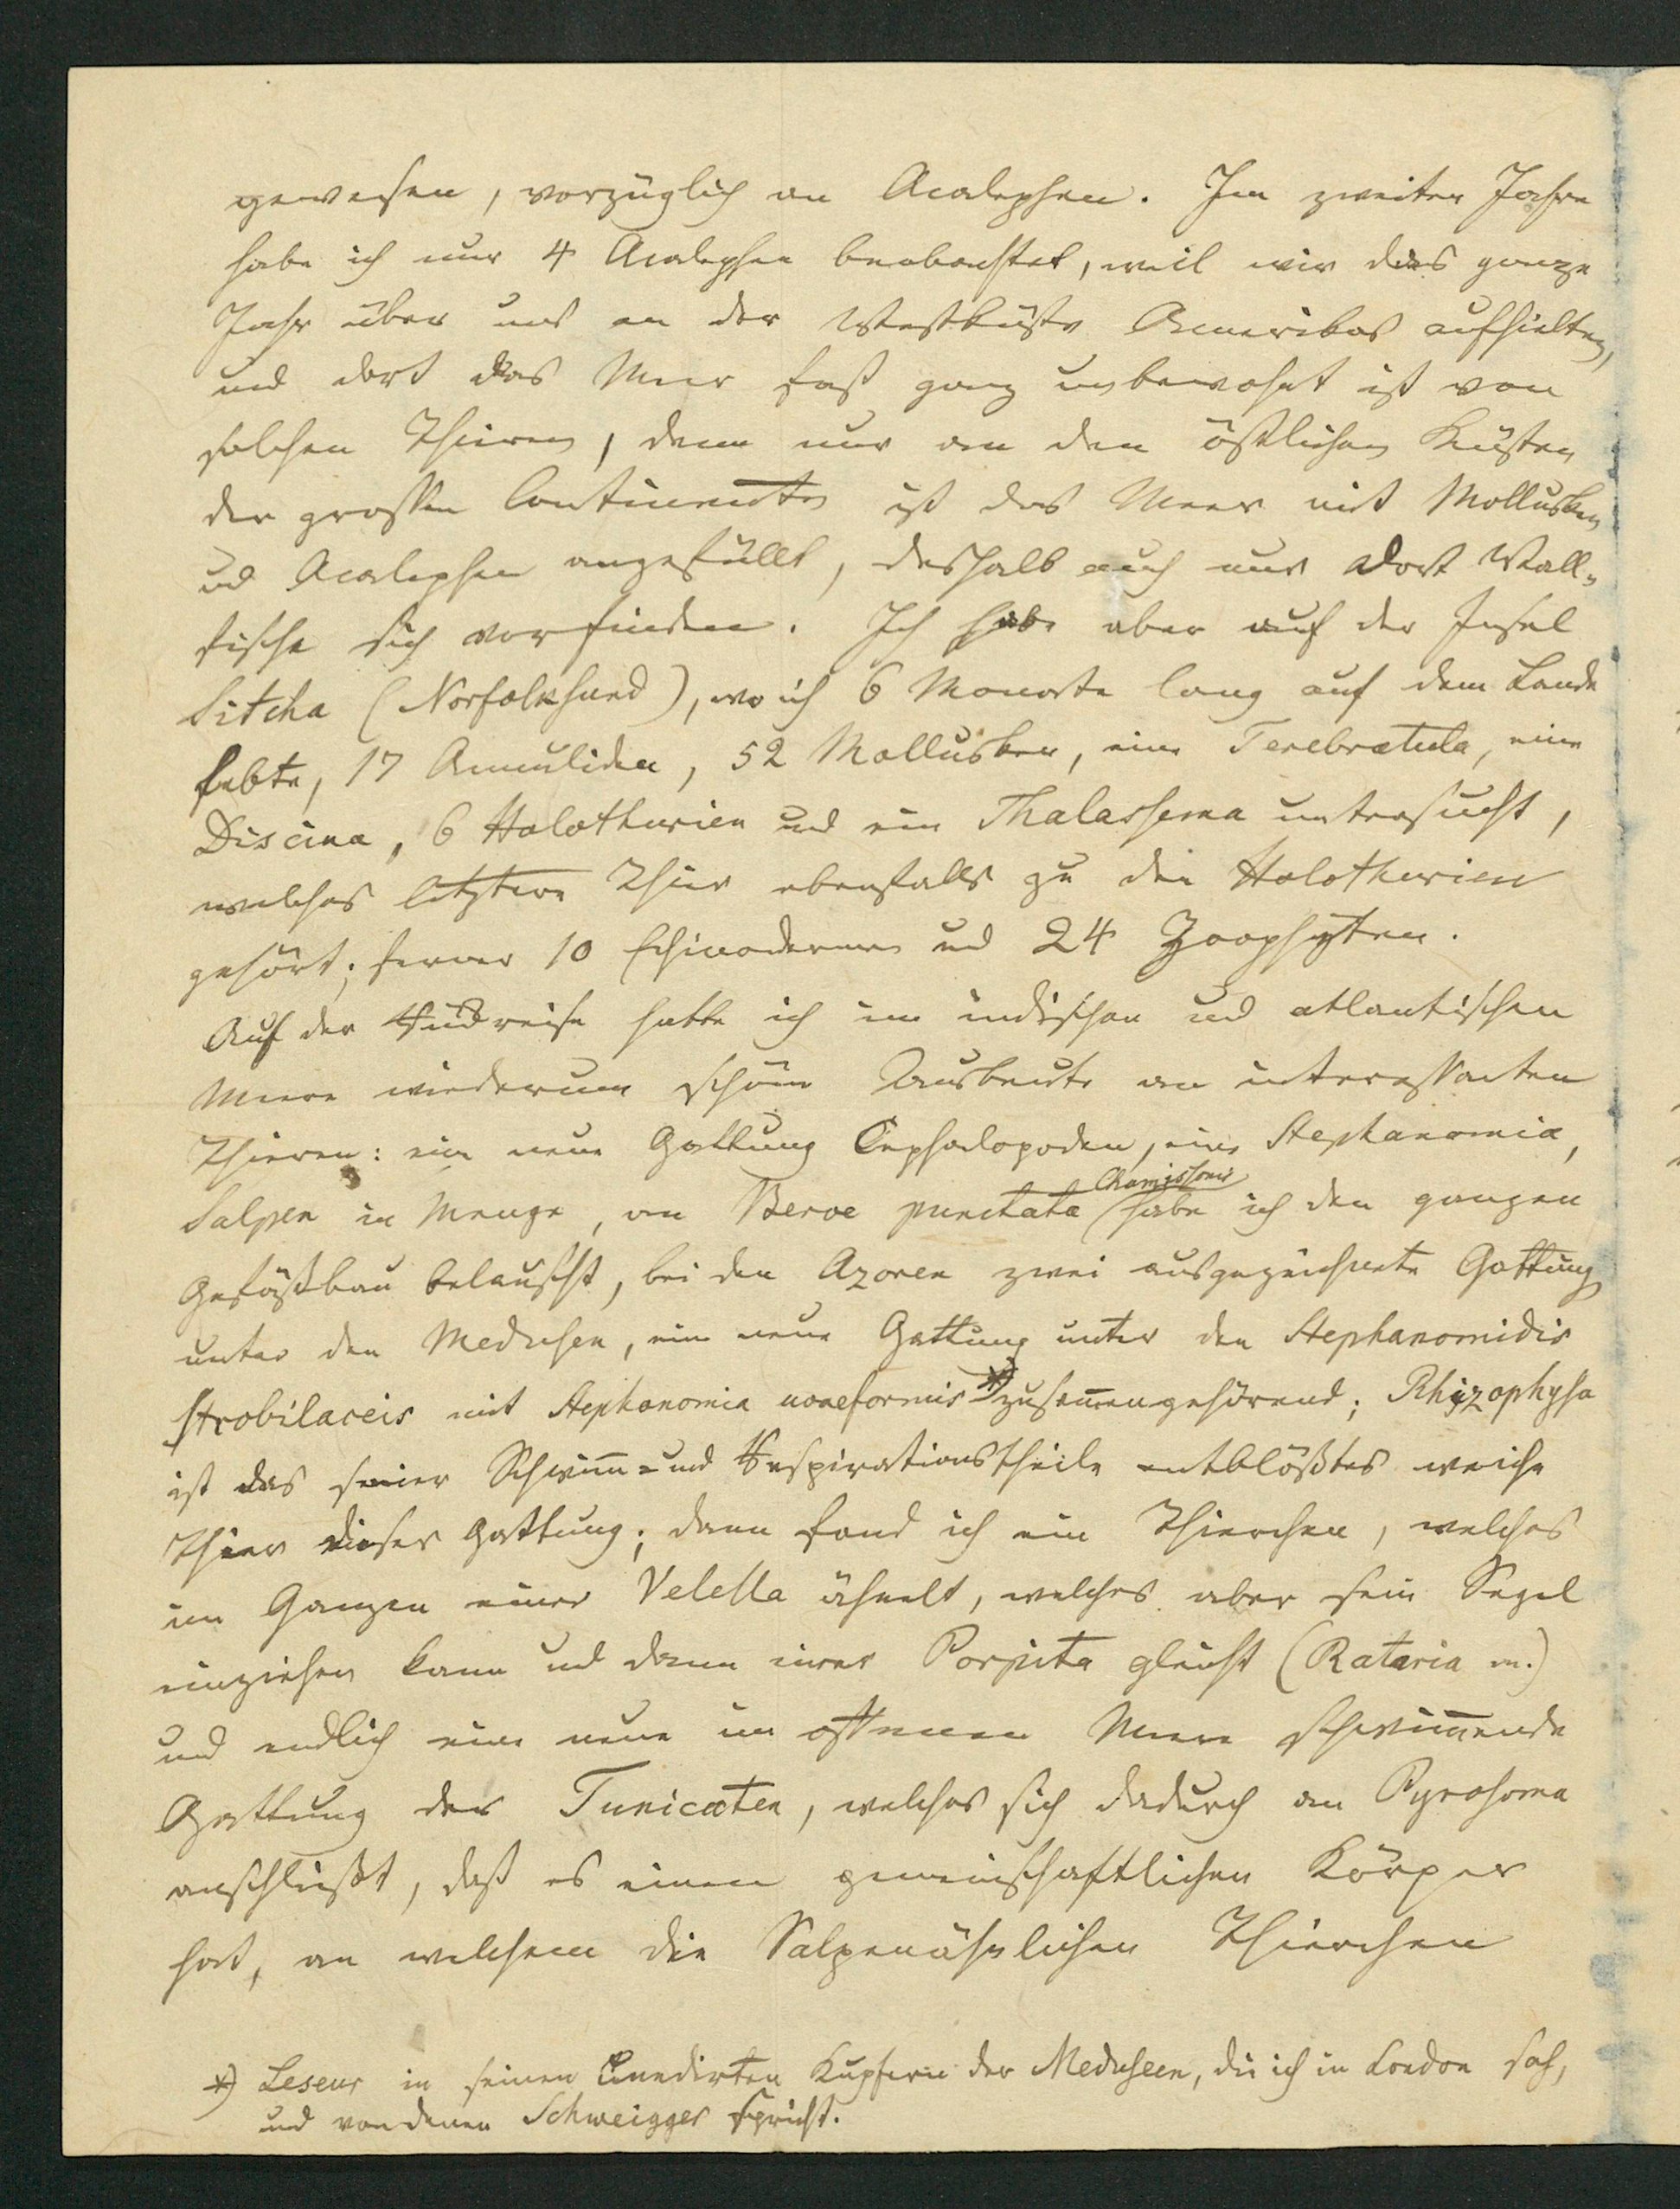 gewesen, vorzüglich an Acalephen. Im zweiten Jahre
habe ich nur 4 Acalephen beobachtet, weil wir das ganze
Jahr über uns an der Westküste Amerikas aufhielten,
und dort das Meer fast ganz unbewohnt ist von
solchen Thieren, denn nur an den östlichen Küsten
der grossen Continente ist das Meer mit Mollusken
und Acalephen angefüllt, deshalb auch nur dort Wall-
fische sich vorfinden. Ich habe aber auf der Insel
Sitcha (Norfolksund), wo ich 6 Monate lang auf dem Lande
lebte, 17 Annuliden, 52 Mollusken, eine Terebratula, eine
Discina, 6 Holothurien und ein Thalassema untersucht,
welches letztere Thier ebenfalls zu den Holothurien
gehört; ferner 10 Echinodermen und 24 Zoophyten.
Auf der Rückreise hatte ich im indischen und atlantischen
Meere wiederum schöne Ausbeute an interessanten
Thieren: eine neue Gattung Cephalopoden, eine Stephanomia,
Salpen in Menge, an Beroe punctata Chamissonis habe ich den ganzen
Gefäßbau belauscht, bei den Azoren zwei ausgezeichnete Gattung
unter den Medusen, eine neue Gattung unter den Stephanomidis
strobilaceis mit Stephanomia uvaeformis *) zusammengehörend; Rhizophysa
ist das seiner Schwimm- und Respirationstheile entblößtes weiche
Thier dieser Gattung; dann fand ich ein Thierchen, welches
im Ganzen einer Velella ähnelt, welches aber sein Segel
einziehen kann und dann einer Porpita gleicht (Rataria m.)
und endlich eine neue im offenen Meere schwimmende
Gattung der Tunicaten, welches sich dadurch an Pyrosoma
anschließt, daß es einen gemeinschaftlichen Körper
hat, an welchem die Salpenähnlichen Thierchen
*) Leseur in seinen unedirten Kupfern der Medusen, die ich in London sah,
und von denen Schweigger spricht.